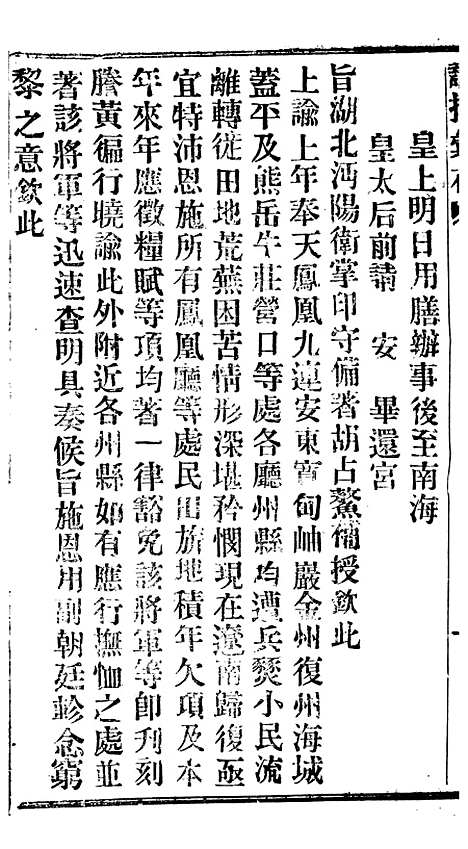 皇上明日用膳辦事後至南海
皇太后前請　安　畢還宮
旨湖北沔陽衛掌印守備著胡占鰲補授欽此
上諭上年奉天鳳凰九連安東寬甸岫巖金州復州海城
蓋平及熊岳牛莊營口等處各廳州縣均遭兵燹小民流
離轉徙田地荒蕪困苦情形深堪矜憫現在遼南歸復亟
宜特沛恩施所有鳳凰廳等處民田旂地積年欠項及本
年來年應徵糧賦等項均著一律豁免該將軍等卽刋刻
謄黃徧行曉諭此外附近各州縣如有應行撫恤之處並
著該將軍等迅速查明具奏候旨施恩用副朝廷軫念窮
黎之意欽此